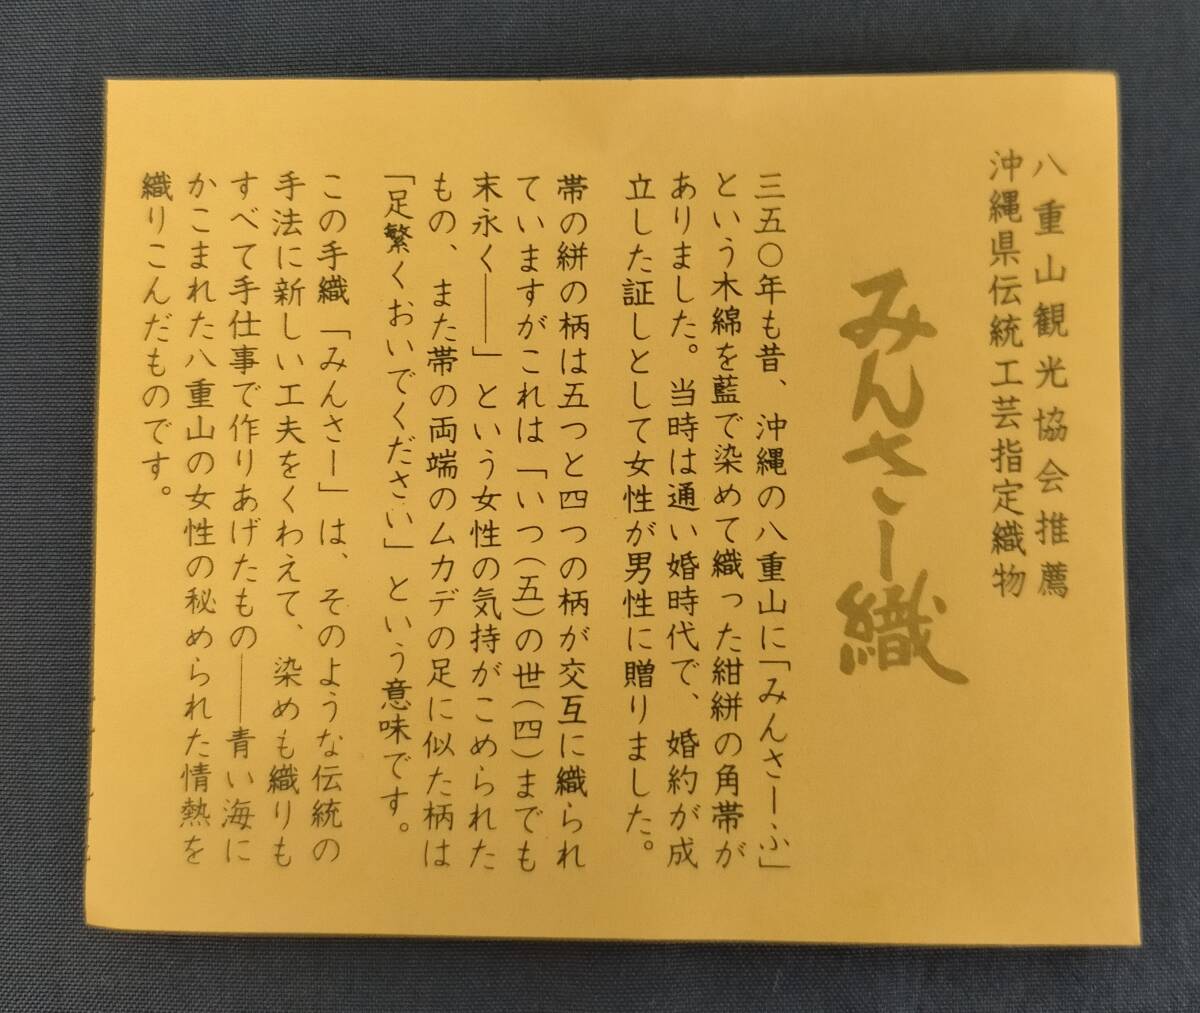 八重山観光協会推薦
沖縄県伝統工芸指定織物
みんさー織
三五〇年も昔、沖縄の八重山に「みんさーふ」
という木綿を藍で染めて織った紺絣の角帯が
ありました。当時は通い婚時代で、婚約が成
立した証しとして女性が男性に贈りました。
帯の絣の柄は五つと四つの柄が交互に織られ
ていますがこれは「いつ(五)の世(四)までも
末永く――」という女性の気持がこめられた
もの、また帯の両端のムカデの足に似た柄は
「足繁くおいでください」という意味です。
この手織「みんさー」は、そのような伝統の
手法に新しい工夫をくわえて、染めも織りも
すべて手仕事で作りあげたもの――青い海に
かこまれた八重山の女性の秘められた情熱を
織りこんだものです。